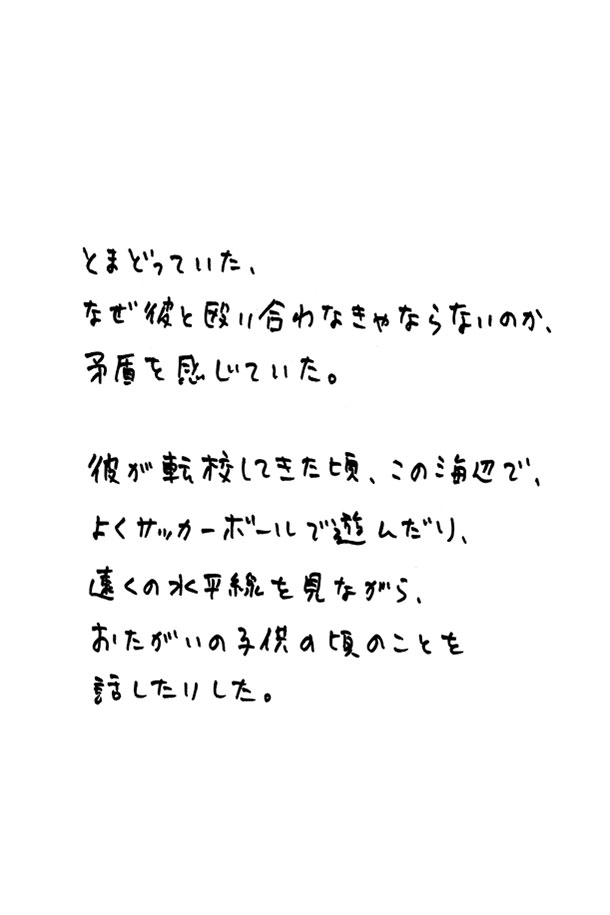 とまどっていた、
なぜ彼と殴り合わなきゃならないのか、
矛盾を感じていた。
彼が転校してきた頃、この海辺で、
よくサッカーボールで遊んだり、
遠くの水平線を見ながら、
おたがいの子供の頃のことを
話したりした。